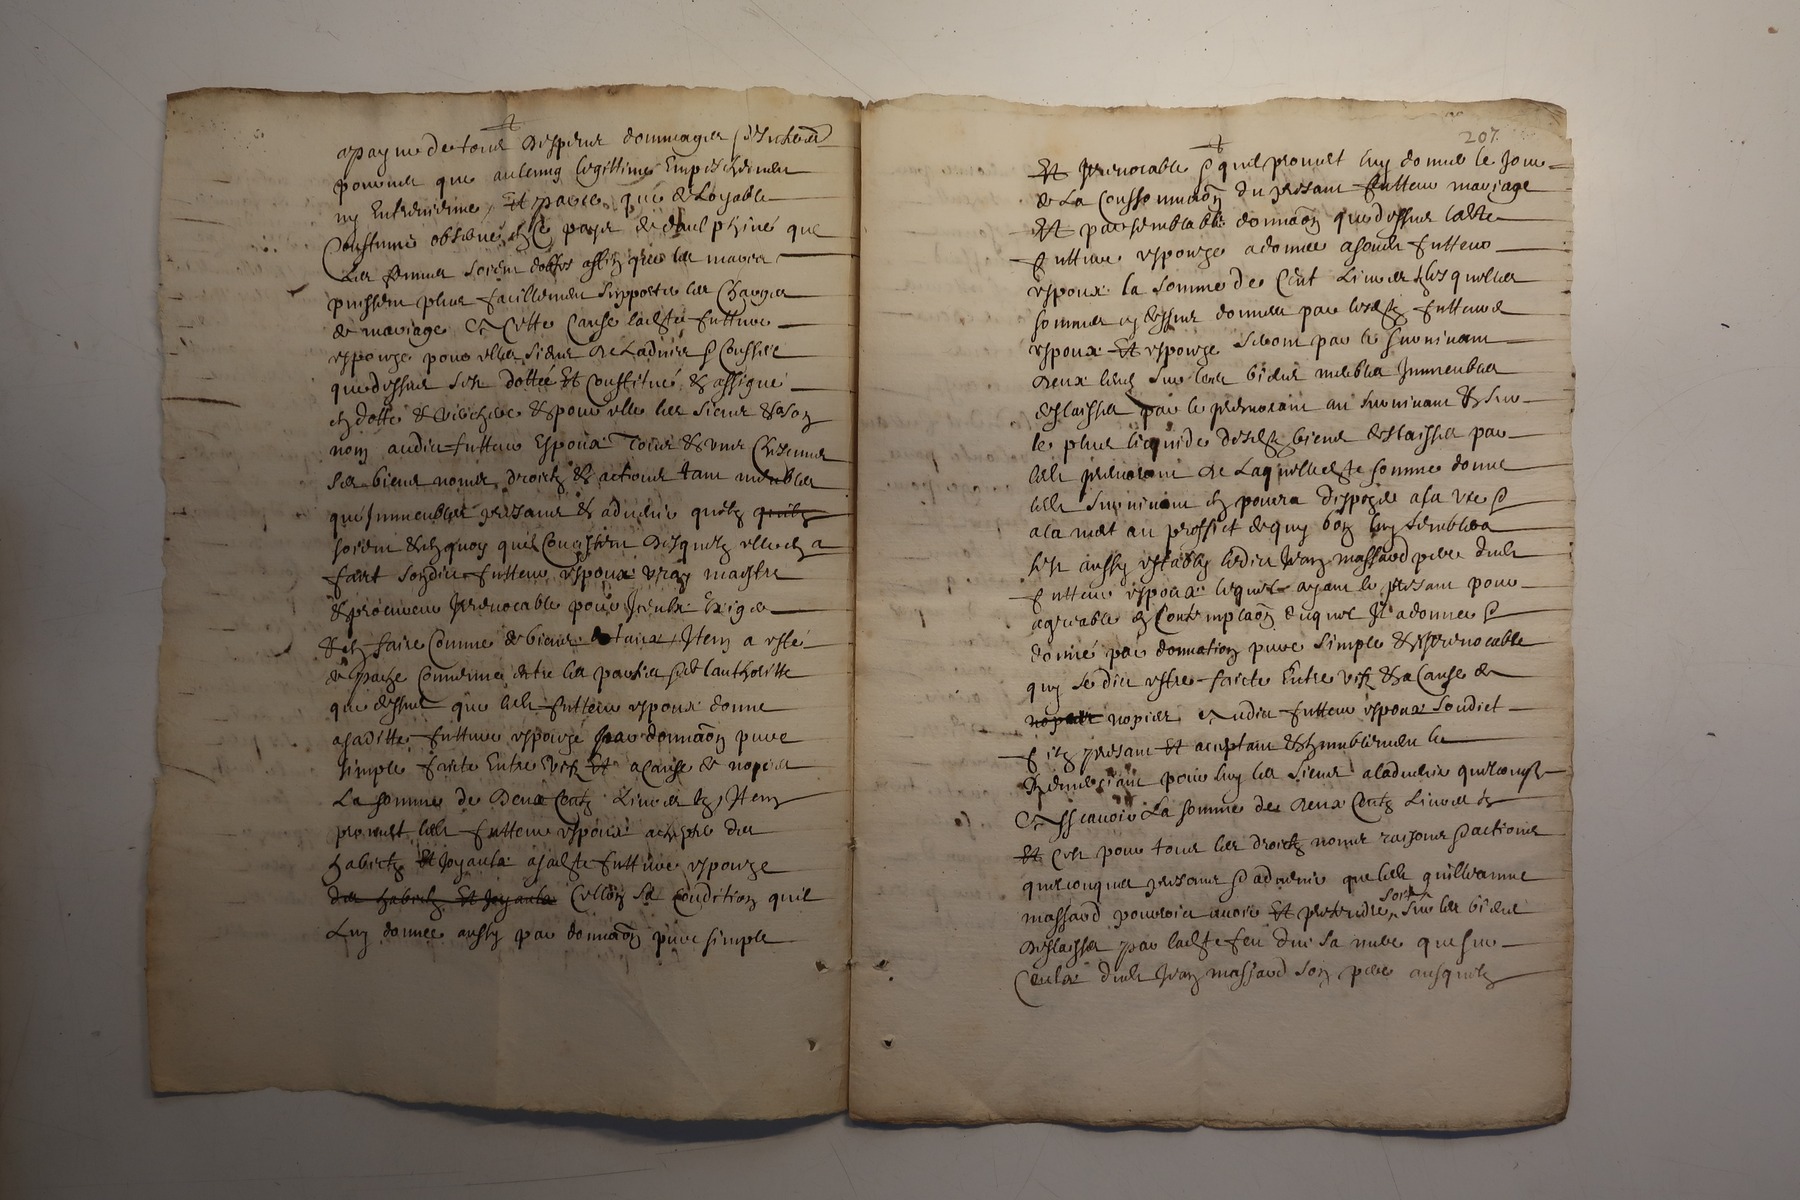 apayne de tous despens dommages
pourveu que aulcung legittime Empeschement
ny Entrevienne, Et parce que de Loyable
Coustume observé en Ce pays de daulphiné que
Les femmes soient dottes affin que les maris
puissent plus facillement supporter les Charges
de mariage A Cette Cause ladte future
espouze pour elle
que dessus sest dottée Et Constitué & assigné
en dotte & pour elle les siens & a son
nom audit futeur Espoux Tous & uns Chescuns
ses biens noms droictz & actions tant meubles
que Immeubles presans & advenir quelz quilz
soient & en quoy quilz Concistent desquelz elle en a
faict sondit futeur espoux vray maistre
& procureur Irrevocable pour Iceulx Exiger
& en faire Comme de biens dotaux, Item a esté
de pache Convenu entre les parties de lauthoritte
que dessus que ledt futeur espoux donne
asaditte future espouze par donnaōn pure
simple faicte Entre vifz Et a cause de nopces
La somme de Deux Centz Livres tz, Item
promet ledt futeur espoux achepter des
habictz Et Joyaulx a sadte future espouze
des habictz Et Joyaulx Cellon sa Condition quil
Luy donne aussy par donnaōn pure simple
207.
Et Irrevocable & quil promet luy donner le Jour
de La Consommaōn du presant futteur mariage
Et par semblable donnaōn que dessus ladte
future espouze a donné a sondt futeur
espoux la somme de Cent Livres lesquelles
sommes cy dessus données par lesdtz futeurs
espoux Et espouze seront par le survivant
Deux leves sur les biens meubles Immeubles
deslaissés par le premorant au survivant & sur
le plus liquide desdtz biens deslaisses par
ledt premorant De Laquelle dte somme donnee
ledt survivant en pourra disposer a sa vie &
a la mort au proffict de quy bon luy semblera
sest aussy estably ledit Jean massard pere dudt
futeur espoux lequel ayant le presant pour
agreable en Contemplaōn duquel Il a donné &
donne par donnation pure simple & Irrevocable
quy se dit estre faicte Entre vifz & a Cause de
nopces nopces audit futeur espoux sondict
filz presant Et aceptant & humblement le
Remerciant pour luy les siens a ladvenir quelconqz
Assçavoir La somme de Deux Centz Livres tz
Et Cest pour tous les droictz noms raisons & actions
quelconques presans & advenir que ledt guilleaume
massard pourroit avoir Et pretendre, soit sur les biens
Deslaisses par ladte feu sa mere que sur
Ceulx dudt Jean massard son pere ausquelz